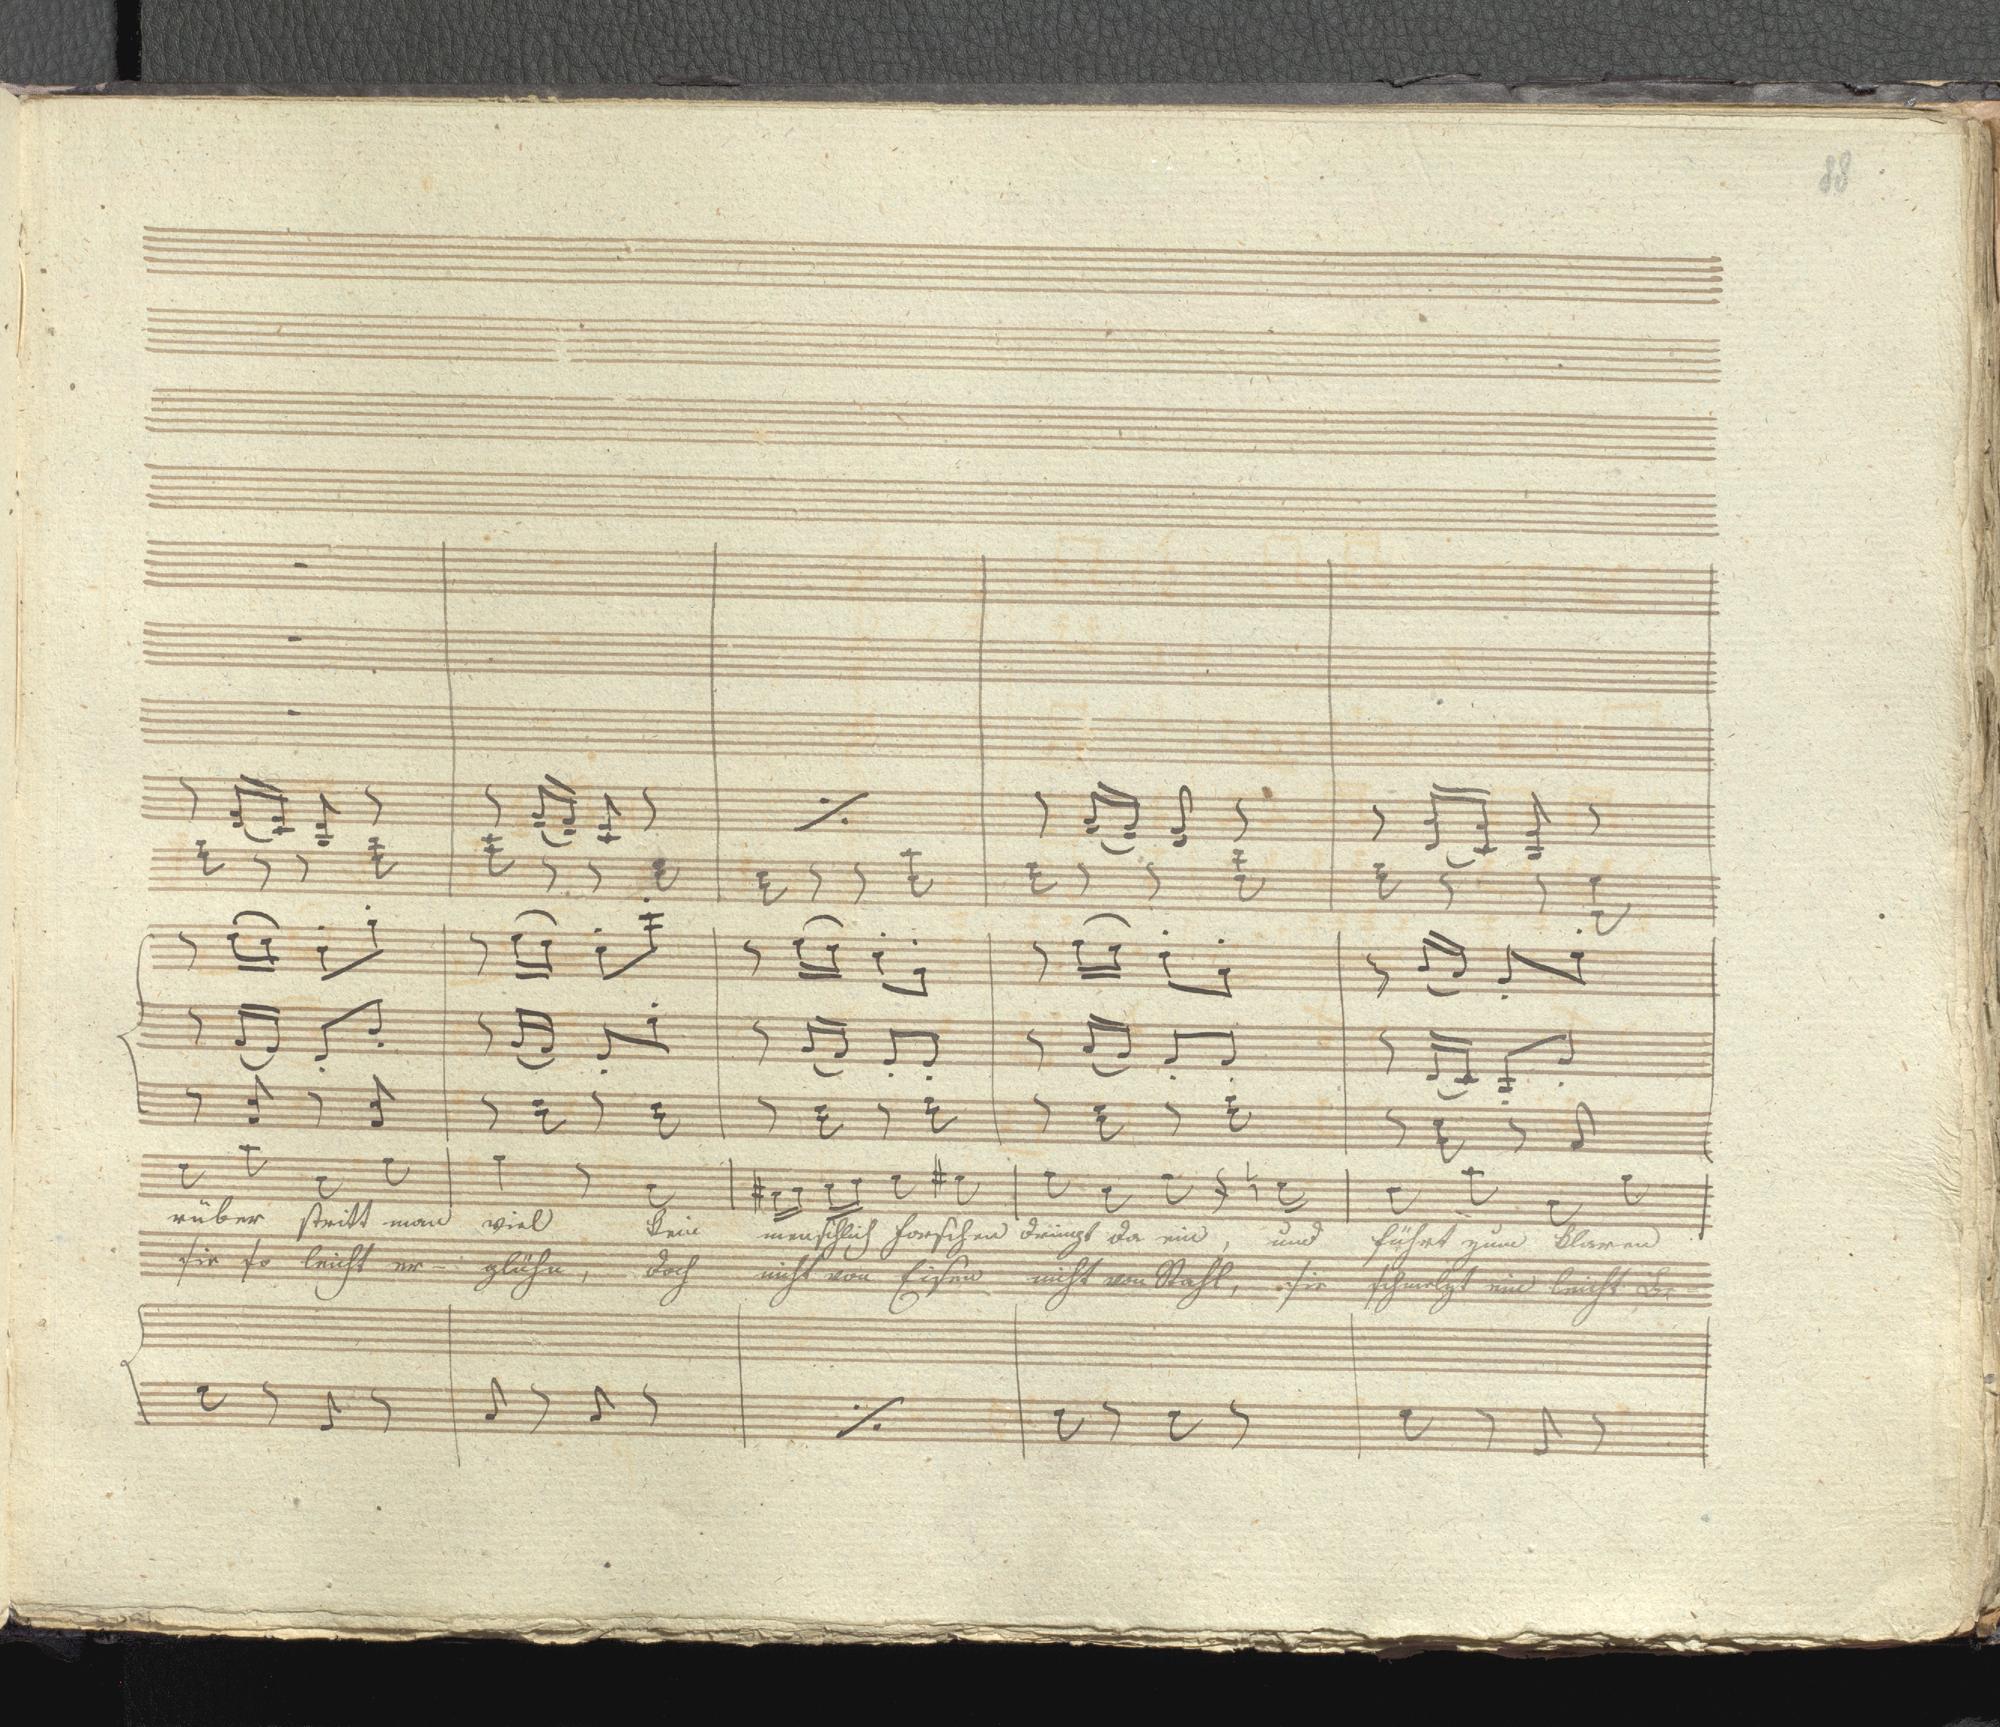 88
rüber stritt man viel kein menschlich forschen dringt da ein, und führt zum klaren
sie so leicht er- glühn, doch nicht von Eisen nicht von Stahl, sie schmelzt ein leicht Be-